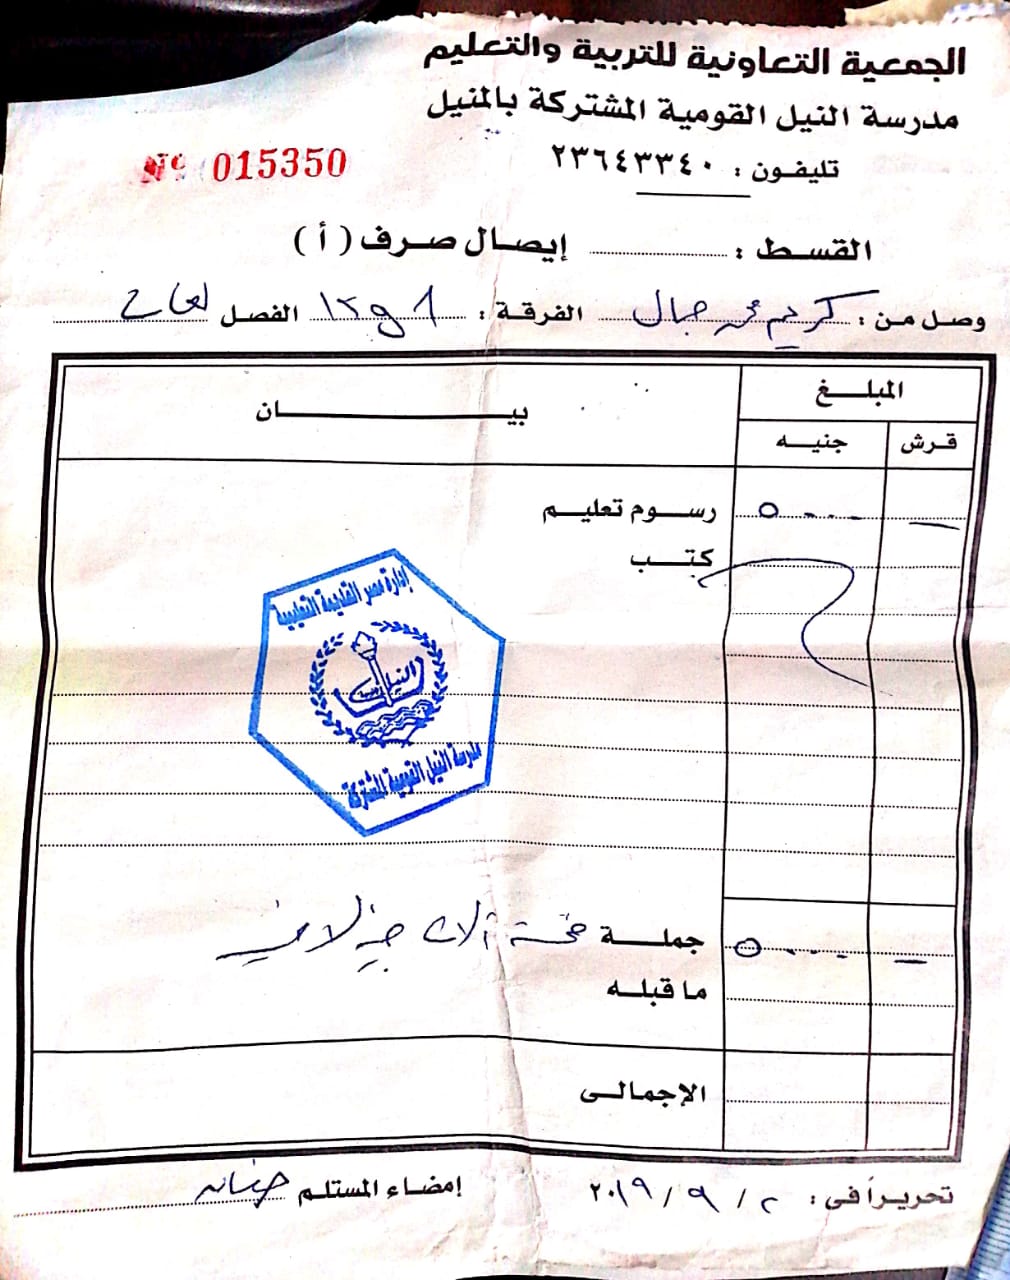 الجمعية التعاونية للتربية والتعليم
مدرسة النيل القومية المشتركة بالمنيل
تليفون : ٢٣٦٤٣٣٤٠
Nº 015350
القسط : إيصال صرف ( أ )
وصل من : كريم محمد جمال الفرقة : الفصل
المبلغ
بيان
قرش جنيه
رسوم تعليم ٥٠٠٠ -
كتب
إدارة مصر القديمة التعليمية
النيل
مدرسة النيل القومية المشتركة
جملة خمسة آلاف جنيه لا غير ٥٠٠٠ -
ما قبله
الإجمالى
تحريراً فى : ٢ / ٩ / ٢٠١٩ إمضاء المستلم